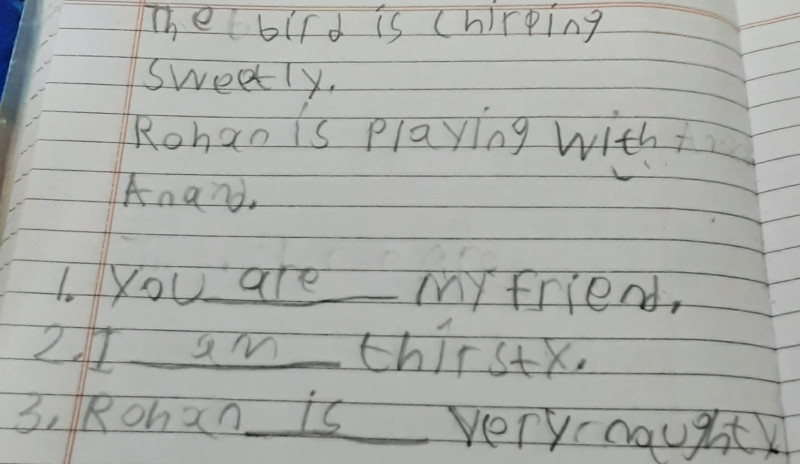 The bird is chirping
sweetly.
Rohan is playing with
Anand.
1. You are my friend.
2. I am thirsty.
3. Rohan is very naughty